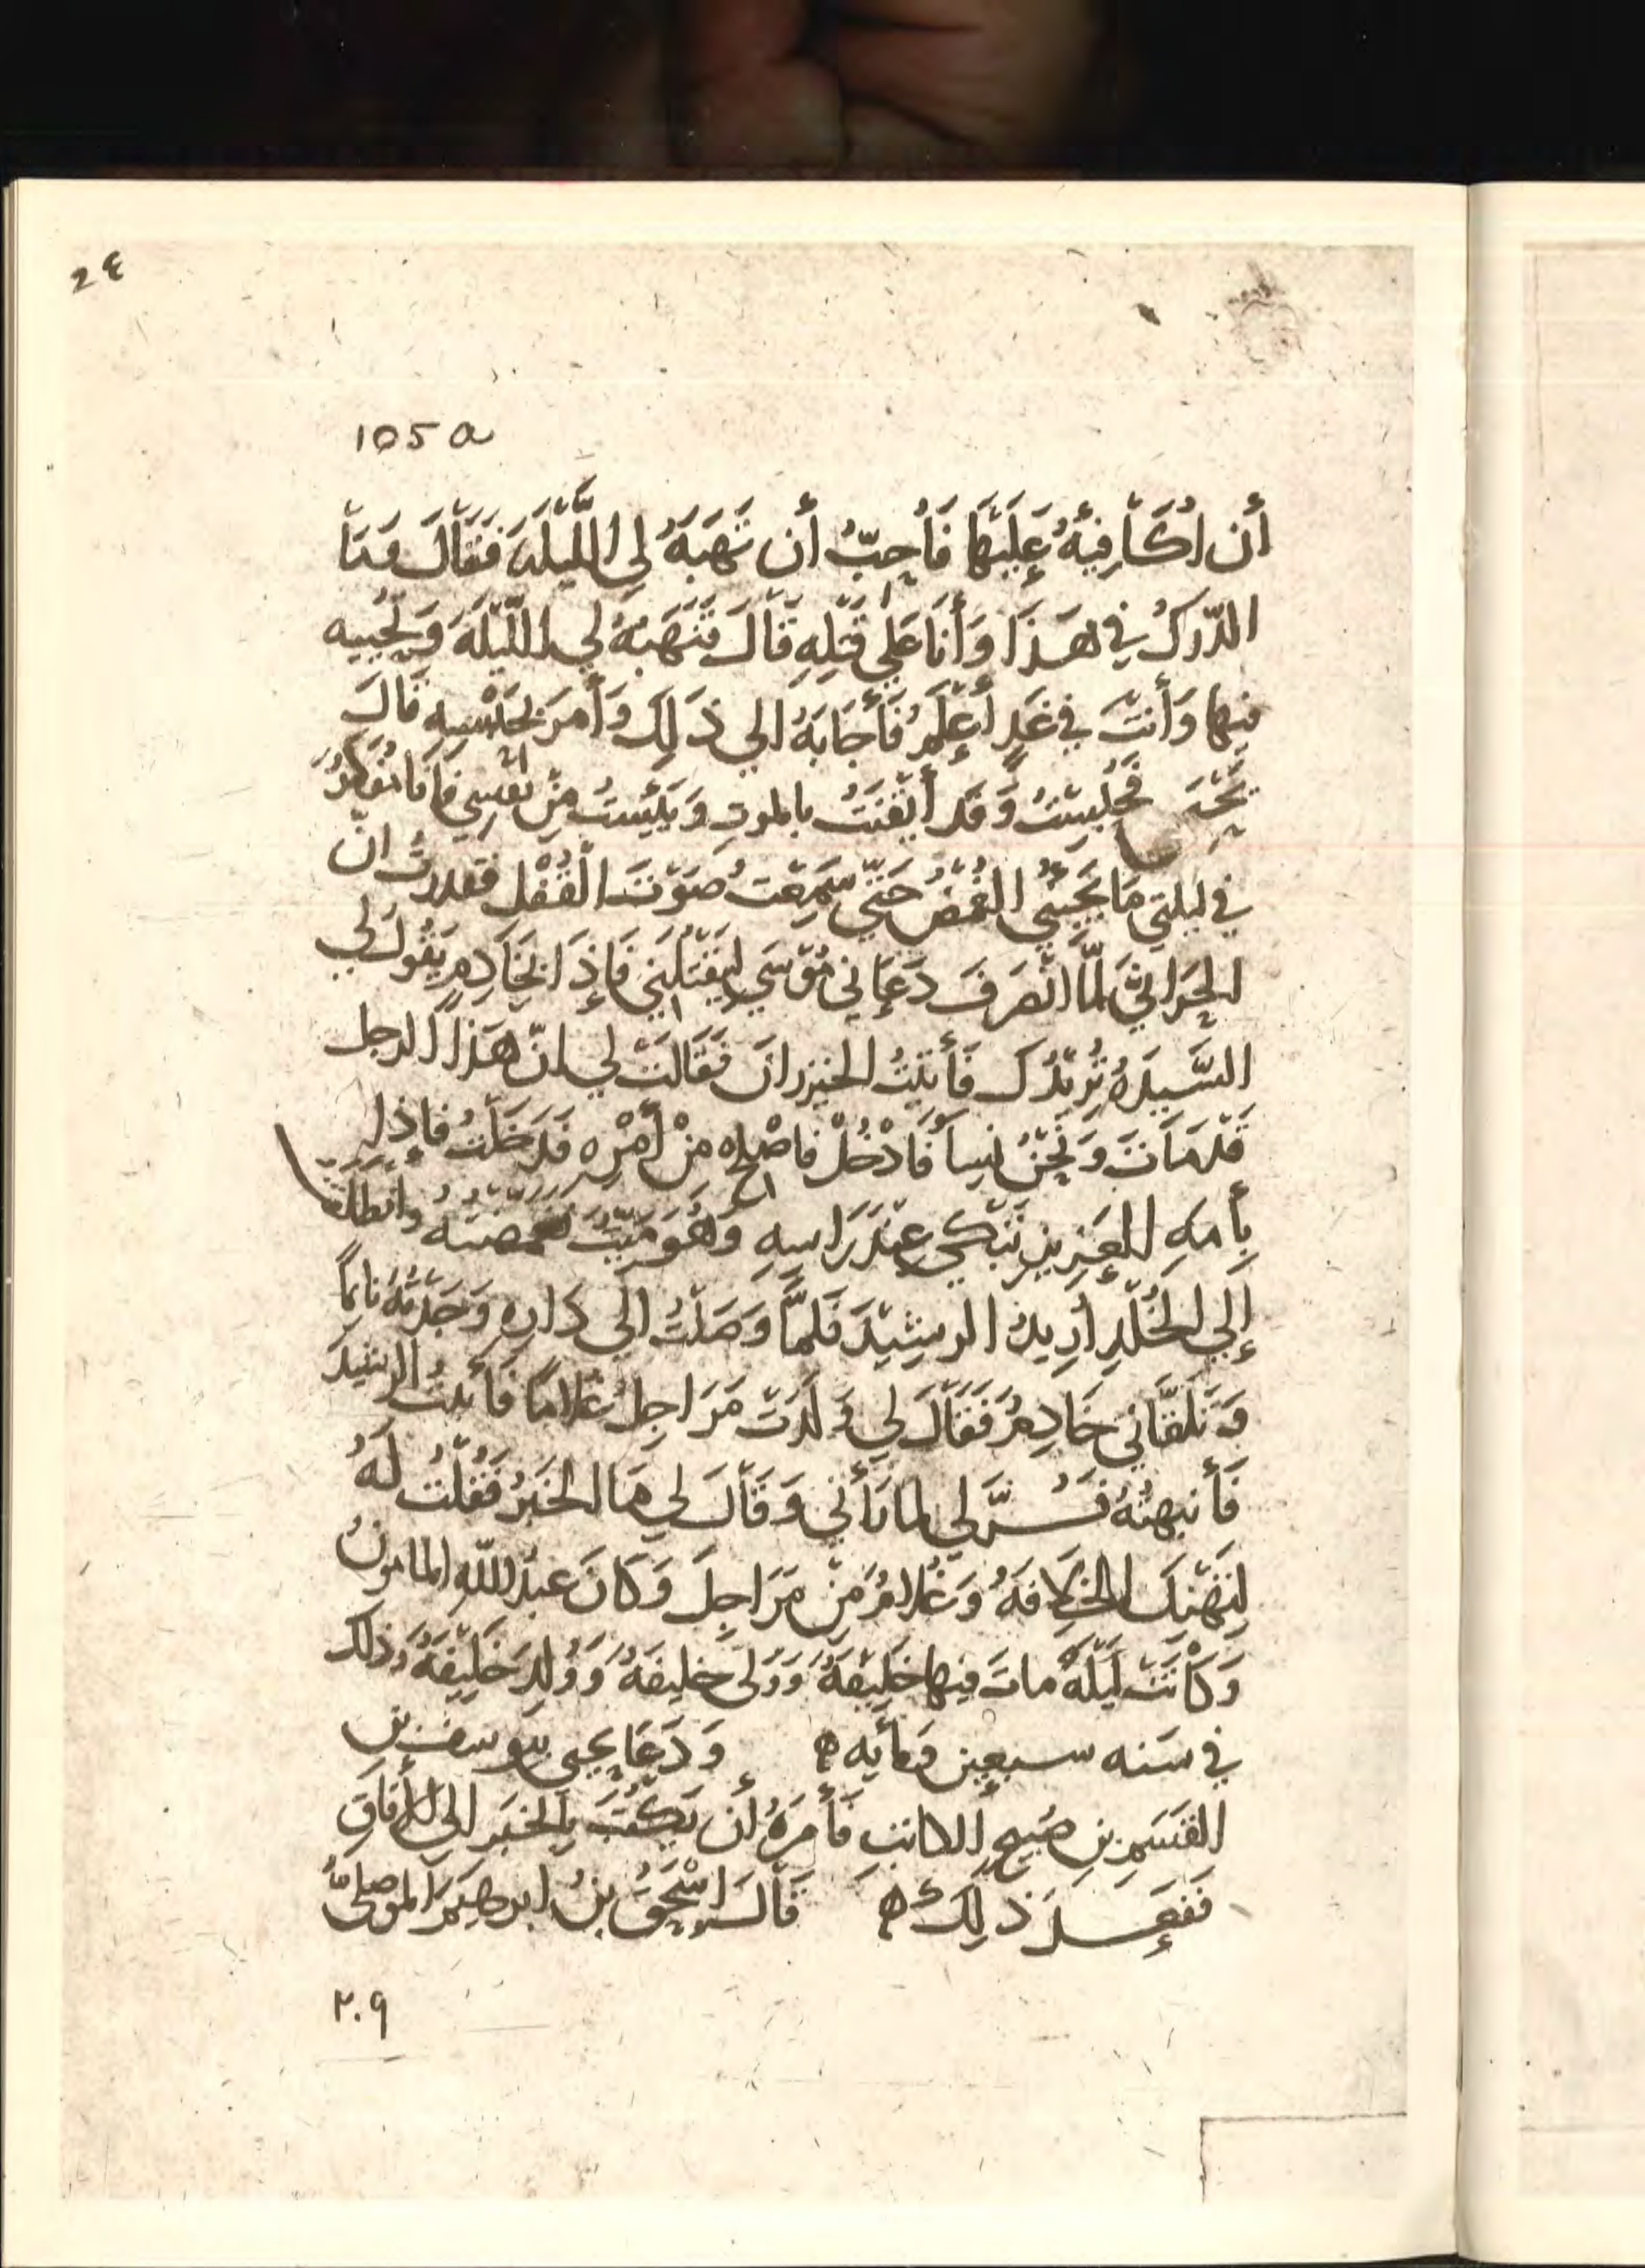 24
105a
أن اُكَافِيَهُ عَلَيْهَا فَأُحِبُّ أن تَهَبَهُ لِي اللَّيْلَةَ فَقَالَ مَا
الدّركُ في هَذَا وَأَنَا عَلى قَتْلِهِ قَالَ تَهَبُهُ لي اللَّيْلَةَ وَتجيبه
فيها وَأَنتَ في غَدٍ أَعْلَمُ فَأَجَابَهُ الى ذَلِكَ وَأَمَرَ بحَبْسِهِ قالَ
يَحْيَى فَحُبِسْتُ وَقَد أَيْقَنْتُ بالموتِ وَيَئِسْتُ مِنْ نَفْسِي فَأَنَا مُفَكِّرُ
في ليلتي مَا يَجِيئُنِي الغُمْضُ حَتّى سَمِعْتُ صَوْتَ الْقُفْلِ فقدرتُ انّ
الحَرانِيَّ لمَّا انْصَرَفَ دَعَانِي مُوْسَى لِيَقْتُلَنِي فَإِذَا الخَادِم يَقُولُ لي
السَّيِدَهُ تُرِيْدُكَ فَأَتَيْتُ الخيزرانَ فَقَالَت لي انّ هَذا الرجل
قَدْ مَاتَ وَنَحْنُ نِسَأ فَادْخُلْ فاصْلِح مِنْ أَمْرِه فَدَخَلتُ فإذا
بِأمهِ العَزِيزِ تَبْكي عِنْدَ رَاسِهِ وَهُوَ مَيّتُ فغمضته وانطلقت
إلى الخُلْدِ أُرِيدُ الرشِيْدَ فَلمَّا وَصَلْتُ الى دَارِهِ وَجَدْتُهُ نَايماً
وَتَلَقَّانِي خَادِمُ فَقَالَ لي وَلَدَتْ مَرَاجِلُ غلاماً فَأتيتُ الرشيدَ
فَأنبهتُهُ فَسُرَّ لي لما رَأَني وَقَالَ لي مَا الخَبَرُ فَقُلْتُ لَهُ
لِتَهْنِكَ الخِلافةُ وَغُلامُ مِنْ مَرَاجِلَ وَكَانَ عَبْدَ اللّهِ المامونُ
وَكَانَتْ لَيْلَةً ماتَ فيها خَلِيْفَةُ وَوَلى خليفةُ وَوُلِدَ خَلِيْفَةُ وَذلك
في سَنه سبعين ومأيه ه وَدَعَا يحيى بيوسفَ بنِ
القسَمِ بنِ صُبيح الكاتبِ فَأَمَرَهُ أن يَكْتُبَ بِالخبَرِ الى الأفاقِ
فَفَعَلَ ذلِكَ ه قَالَ إسْحَقُ بنُ ابرهيمَ الموصليُّ
٢٠٩